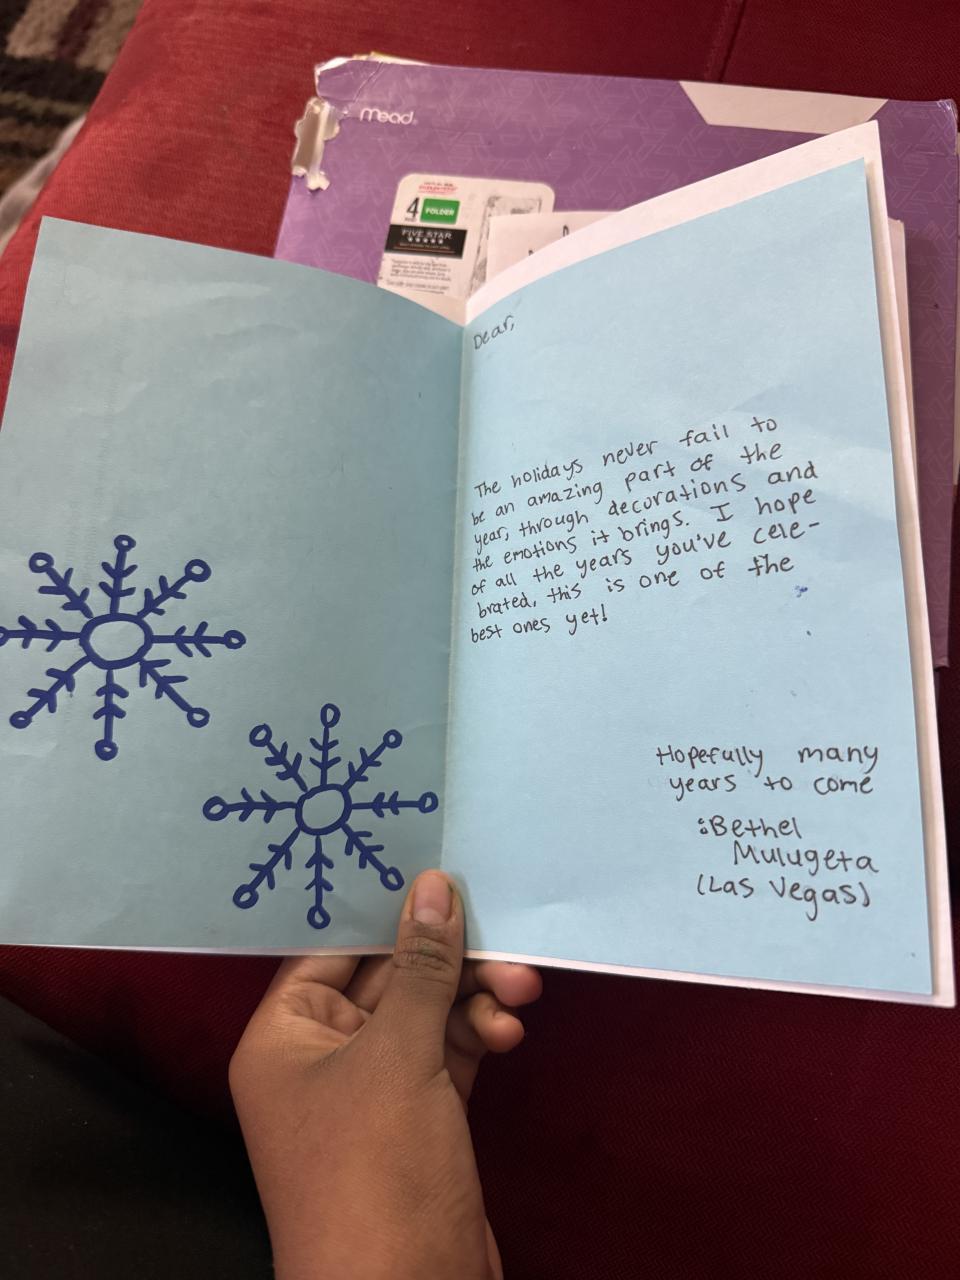 mead
4
FOLDER
FIVE STAR
Dear,
The holidays never fail to
be an amazing part of the
year, through decorations and
the emotions it brings. I hope
of all the years you've cele-
brated, this is one of the
best ones yet!
Hopefully many
years to come
:Bethel
Mulugeta
(Las Vegas)